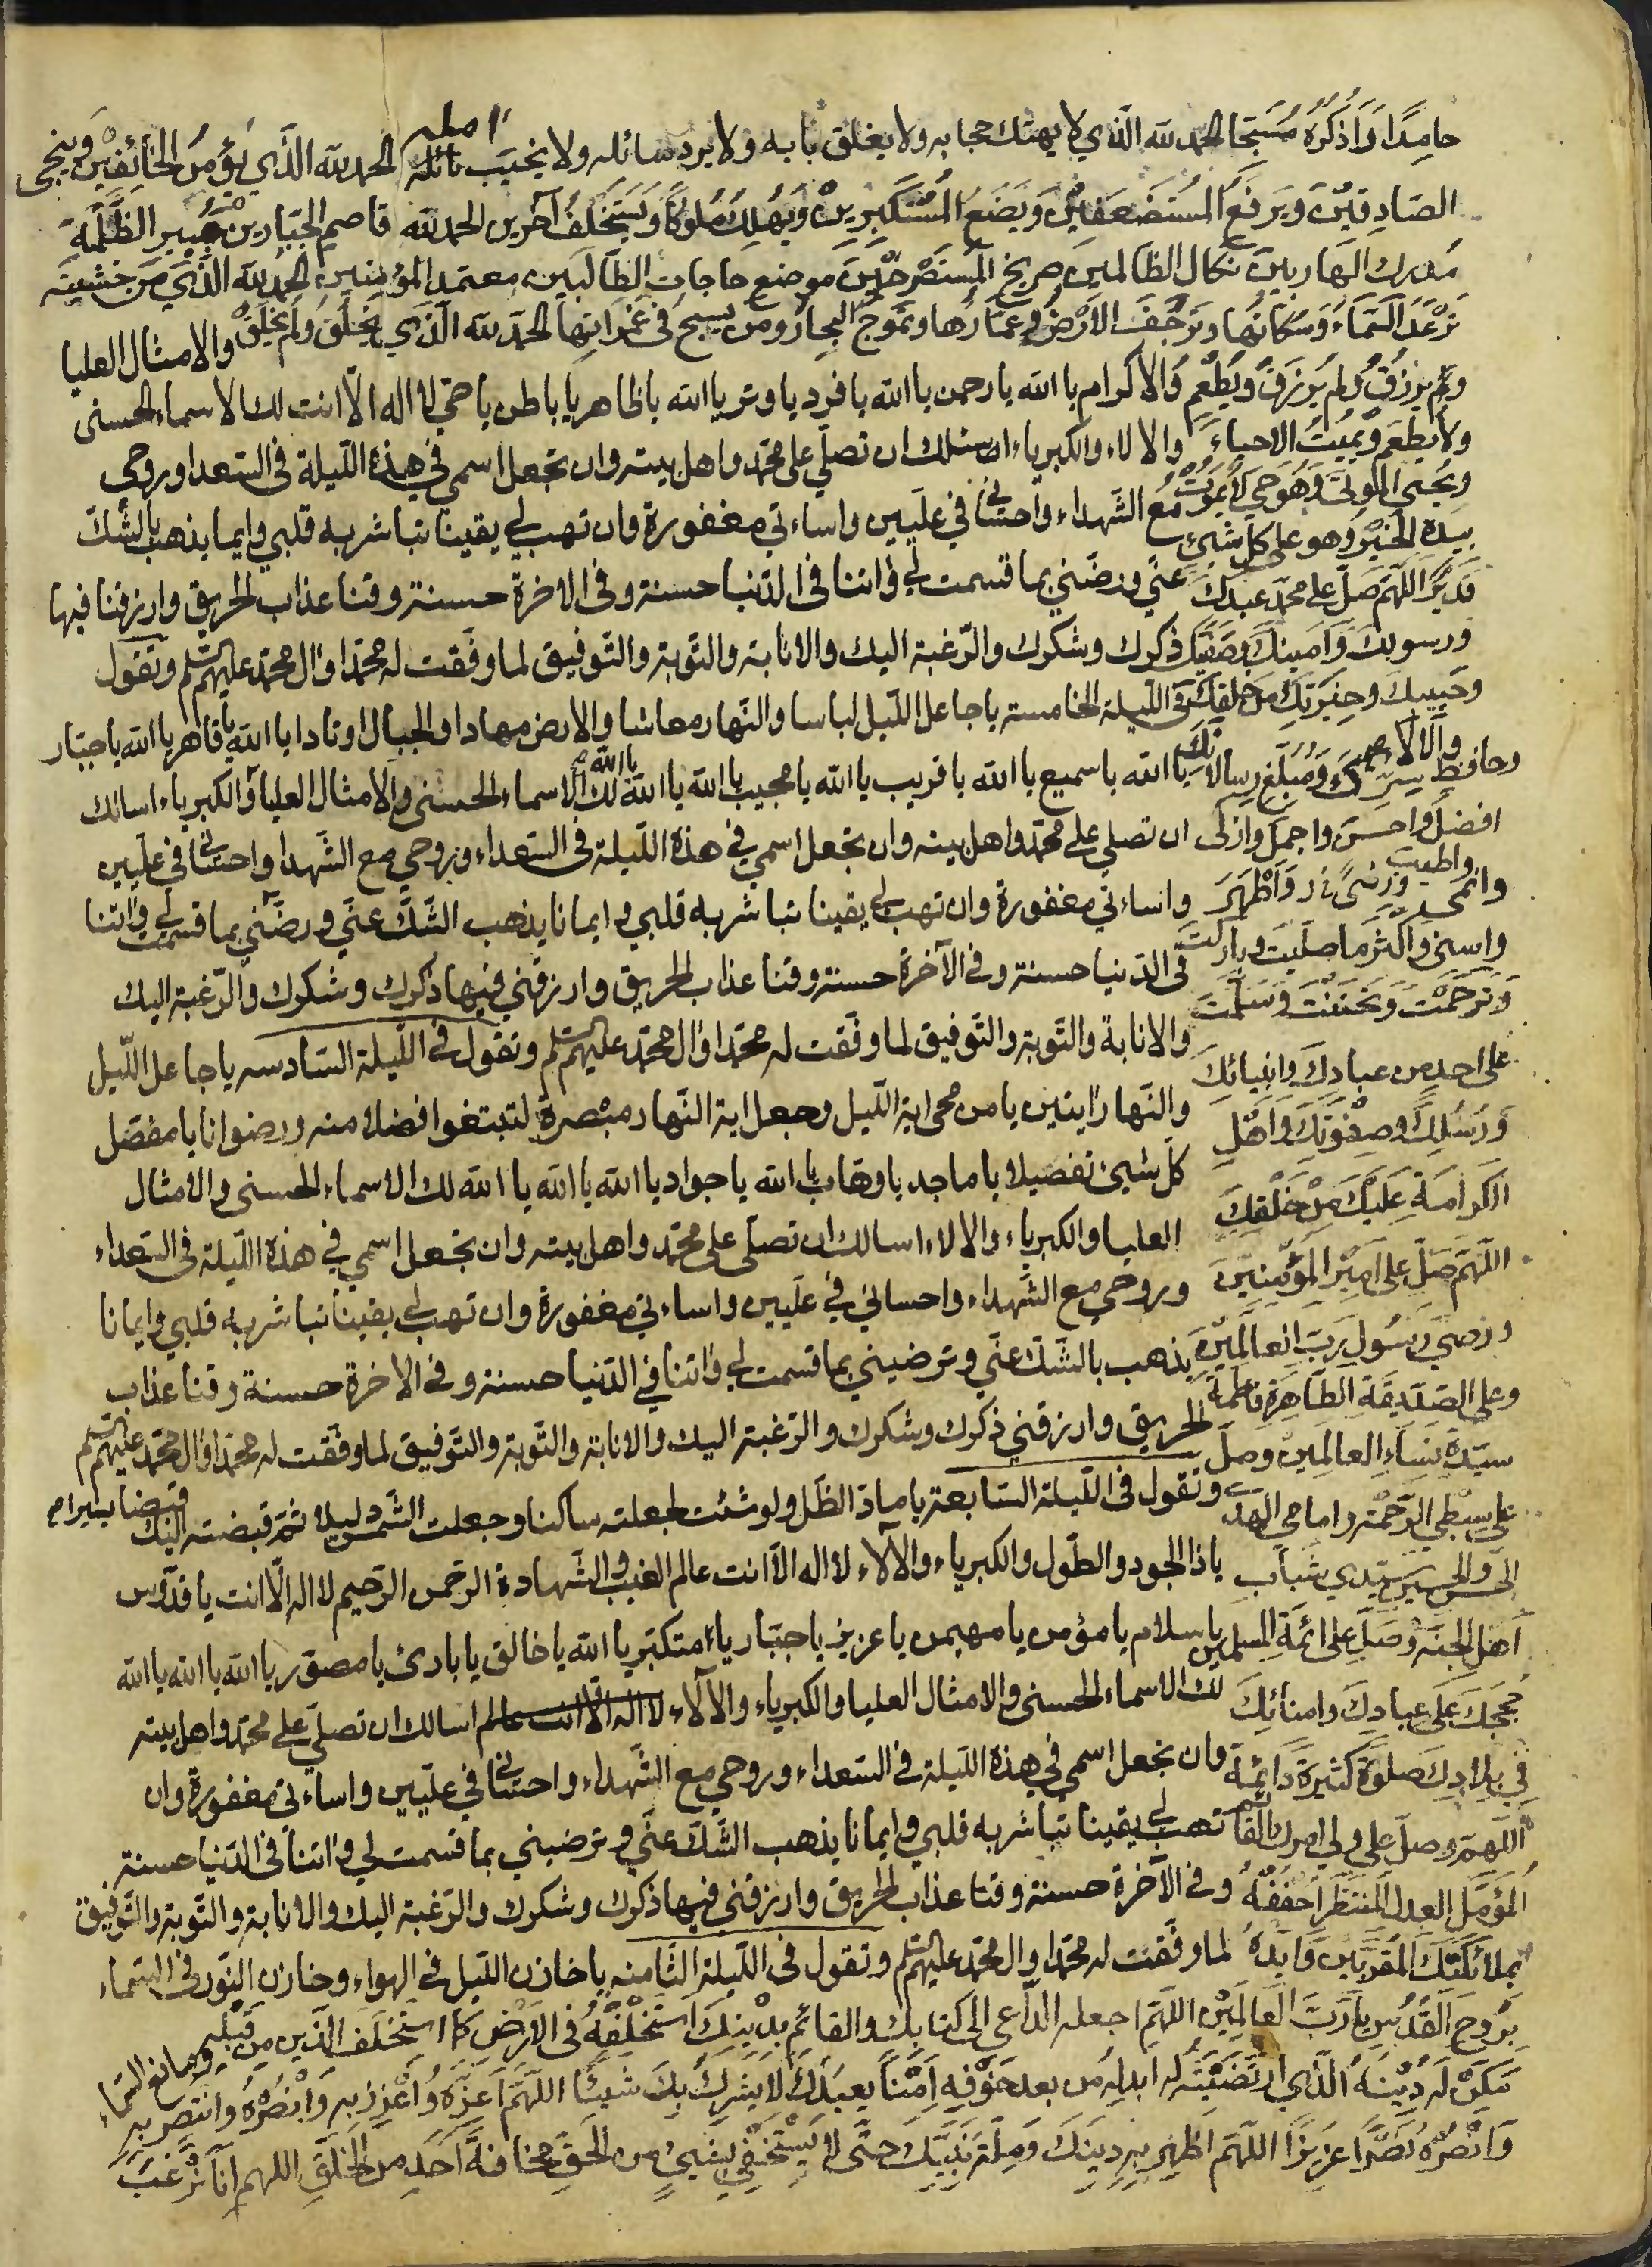 حامِدًا وَاَذكُرُهُ مُسَبِّحًا الحمد لله الّذي لا يهتك حجابه ولا يغلق بابه ولا يرد سائله ولا يخيب نائله امله الحمد لله الّذي يؤمن الخائفين وينجى
الصّادِقِيْنَ وَيَرفَعُ المُستَضعَفينَ وَيَضَعُ المُستَكبِرِينْ وَيُهلِكُ مُلُوكًا وَيَستَخلفُ آخَرين الحمد لله قاصم الجبّارين مُبيرِ الظَّلَمَةِ
مُدرك الهاربين نكال الظالمين صريخ المُستَصْرخينَ موضع حاجات الطالبين معتمد المؤمنين الحمد لله الّذي مِن خَشيَتِه
تَرْعَدُ السَّمَاءُ وَسُكّانُها وترجف الاَرْضُ وعُمّارُها وتَمُوجُ البحارُ ومن يسبح في غَمَراتِها الحمد لله الّذي يَخلُقُ ولَم يُخلَقْ
وَيَرزُقُ ولم يُرزَق وَيُطْعِم
ولا يُطعَم ويُميتُ الاحياءَ
وَيُحيي الموتى وَهُوَ حيّ لا يموتُ
بيده الخير وهو على كل شيئ
قدير اللّهمّ صلّ على محمّد عبدك
ورسولك وَاَمينك وصفيّك
وحبيبك وخِيَرَتِكَ من خلقك
وحافظ سِرّك وَمُبَلّغ رسالاتك
افضل واحسن واجمل وازكى
وانمى واطيب وَاَطْهَرَ
واسنى وَاَكْثَرَ ما صلّيت وباركت
وَترحّمتَ وَتحَنّنْتَ وَسَلّمتَ
على احد من عبادك وانبيائكَ
وَرُسُلِكَ وصفوَتِكَ وَاَهْلِ
الكرامة عَلَيكَ مِن خَلْقِكَ
اللّهمّ صلّ على امير المؤمنين
ووصي رَسُولِ رَبّ العالمين
وعلى الصّدّيقَةِ الطّاهِرَةِ فاطمة
سيّدة نِسَاءِ العالمين وصلّ
على سِبْطَي الرّحمة وامامي الهدى
الحسن والحسين سيّدي شباب
اَهل الجنّة وَصَلّ على ائمّة المسلمين
حُجَجِكَ عَلى عِبادِكَ وامنائكَ
في بلادِكَ صلوة كثيرة دائمة
اللّهمّ وصلّ على ولي امرك القائم
المُؤمّل العدل المُنتظر احففهُ
بملائكتك المُقرّبين وَاَيّدهُ
بِرُوح القُدُسِ يا رَبّ العالمين اللّهُمّ اجعله الدّاعي الى كتابك والقائم بدْينِكَ اسْتَخْلِفْهُ في الاَرْضِ كما استخلفت الّذين مِن قَبْلِهِ
مَكّن له دِيْنَهُ الّذي ارتَضَيتَه له ابدله من بعد خوفه اَمْنًا يعبدك لا يشرك بِكَ شيئًا اللّهمّ اَعِزّه وَاَعْزِز به وَانْصُرهُ وَانتصر به
وَانْصُرهُ نَصْرًا عَزيزًا اللّهمّ اَظهِر به دِينَكَ وَمِلّة نَبيّك حَتّى لا يَسْتَخفِي بشيئ من الحَقّ مخافة احد من الخَلق اللهم انّا نَرْغَبُ
والامثال العليا
والاكرام يا الله يا رحمن يا الله يا فرد يا وتر يا الله يا ظاهر يا باطن يا حيّ لا اله الّا انت لك الاسماء الحسنى
والالاء والكبرياء اسئلك ان تصلّي على محمّد واهل بيته وان تجعل اسمي في هذه اللّيلة فى السّعدا وروحى
مع الشّهداء واحساني في علّيين واساءتي مغفورة وان تهب لي يقينا تباشر به قلبي وايما يذهب بالشّك
عنّي ورضّني بما قسمت لي واتنا في الدّنيا حسنة وفى الاخرة حسنة وقنا عذاب الحريق وارزقنا فيها
ذكرك وشكرك والرّغبة اليك والانابة والتّوبة والتّوفيق لما وفّقت له محمّدا وال محمّد عليهم السلم وتقول
فى اللّيلة الخامسة يا جاعل اللّيل لباسا والنّهار معاشا والارض مهادا والجبال اوتادا يا الله يا قاهر يا الله يا جبّار
يا الله يا سميع يا الله يا قريب يا الله يا مجيب يا الله يا الله يا الله لك الاسماء الحسنى والامثال العليا والكبرياء والالاء اسالك
ان تصلي على محمّد واهل بيته وان تجعل اسمي في هذه اللّيلة فى السّعداء وروحي مع الشّهدا واحساني في علّيين
واساءتي مغفورة وان تهب لي يقينا تباشر به قلبي وايمانا يذهب الشّكّ عنّي ورضّني بما قسمت لي واتنا
في الدّنيا حسنة وفى الآخرة حسنة وقنا عذاب الحريق وارزقني فيها ذكرك وشكرك والرّغبة اليك
والانابة والتّوبة والتّوفيق لما وفّقت له محمّدا وال محمّد عليهم السلم وتقول في اللّيلة السّادسه يا جاعل اللّيل
والنّهار ايتين يا من محى اية اللّيل وجعل اية النّهار مبصرة لتبتغوا فضلا منه ورضوانا يا مفصّل
كلّ شيئ تفصيلا يا ماجد يا وهّاب يا الله يا جواد يا الله يا الله يا الله لك الاسماء الحسنى والامثال
العليا والكبرياء والالاء اسالك ان تصلّي على محمّد واهل بيته وان تجعل اسمي في هذه اللّيلة فى السّعداء
وروحي مع الشّهداء واحساني في علّيين واساءتي مغفورة وان تهب لي يقينا تباشر به قلبي وايمانا
يذهب بالشّكّ عنّي وترضيني بما قسمت لي واتنا في الدّنيا حسنة وفى الاخرة حسنة وقنا عذاب
الحريق وارزقني ذكرك وشكرك والرّغبة اليك والانابة والتّوبة والتّوفيق لما وفّقت له محمّدا وال محمّد عليهم السلم
وتقول فى اللّيلة السّابعة يا مادّ الظلّ ولو شئت لجعلته ساكنا وجعلت الشّمس دليلا ثمّ قبضته اليك قبضا يسيرا
يا ذا الجود والطّول والكبرياء والآلاء لا اله الّا انت عالم الغيب والشّهادة الرّحمن الرّحيم لا اله الّا انت يا قدّوس
يا سلام يا مؤمن يا مهيمن يا عزيز يا جبّار يا متكبّر يا الله يا خالق يا بارئ يا مصوّر يا الله يا الله يا الله
لك الاسماء الحسنى والامثال العليا والكبرياء والآلاء لا اله الّا انت عالم اسالك ان تصلّي على محمّد واهل بيته
وان تجعل اسمي في هذه اللّيلة فى السّعداء وروحي مع الشّهداء واحساني في علّيين واساءتي مغفورة وان
تهب لي يقينا تباشر به قلبي وايمانا يذهب الشّكّ عنّي وترضيني بما قسمت لي واتنا في الدّنيا حسنة
وفى الآخرة حسنة وقنا عذاب الحريق وارزقني فيها ذكرك وشكرك والرّغبة اليك والانابة والتّوبة والتّوفيق
لما وفّقت له محمّدا وال محمّد عليهم السلم وتقول فى اللّيلة الثّامنه يا خازن اللّيل فى الهواء وخازن النّور في السّماء
ومانع السّماء